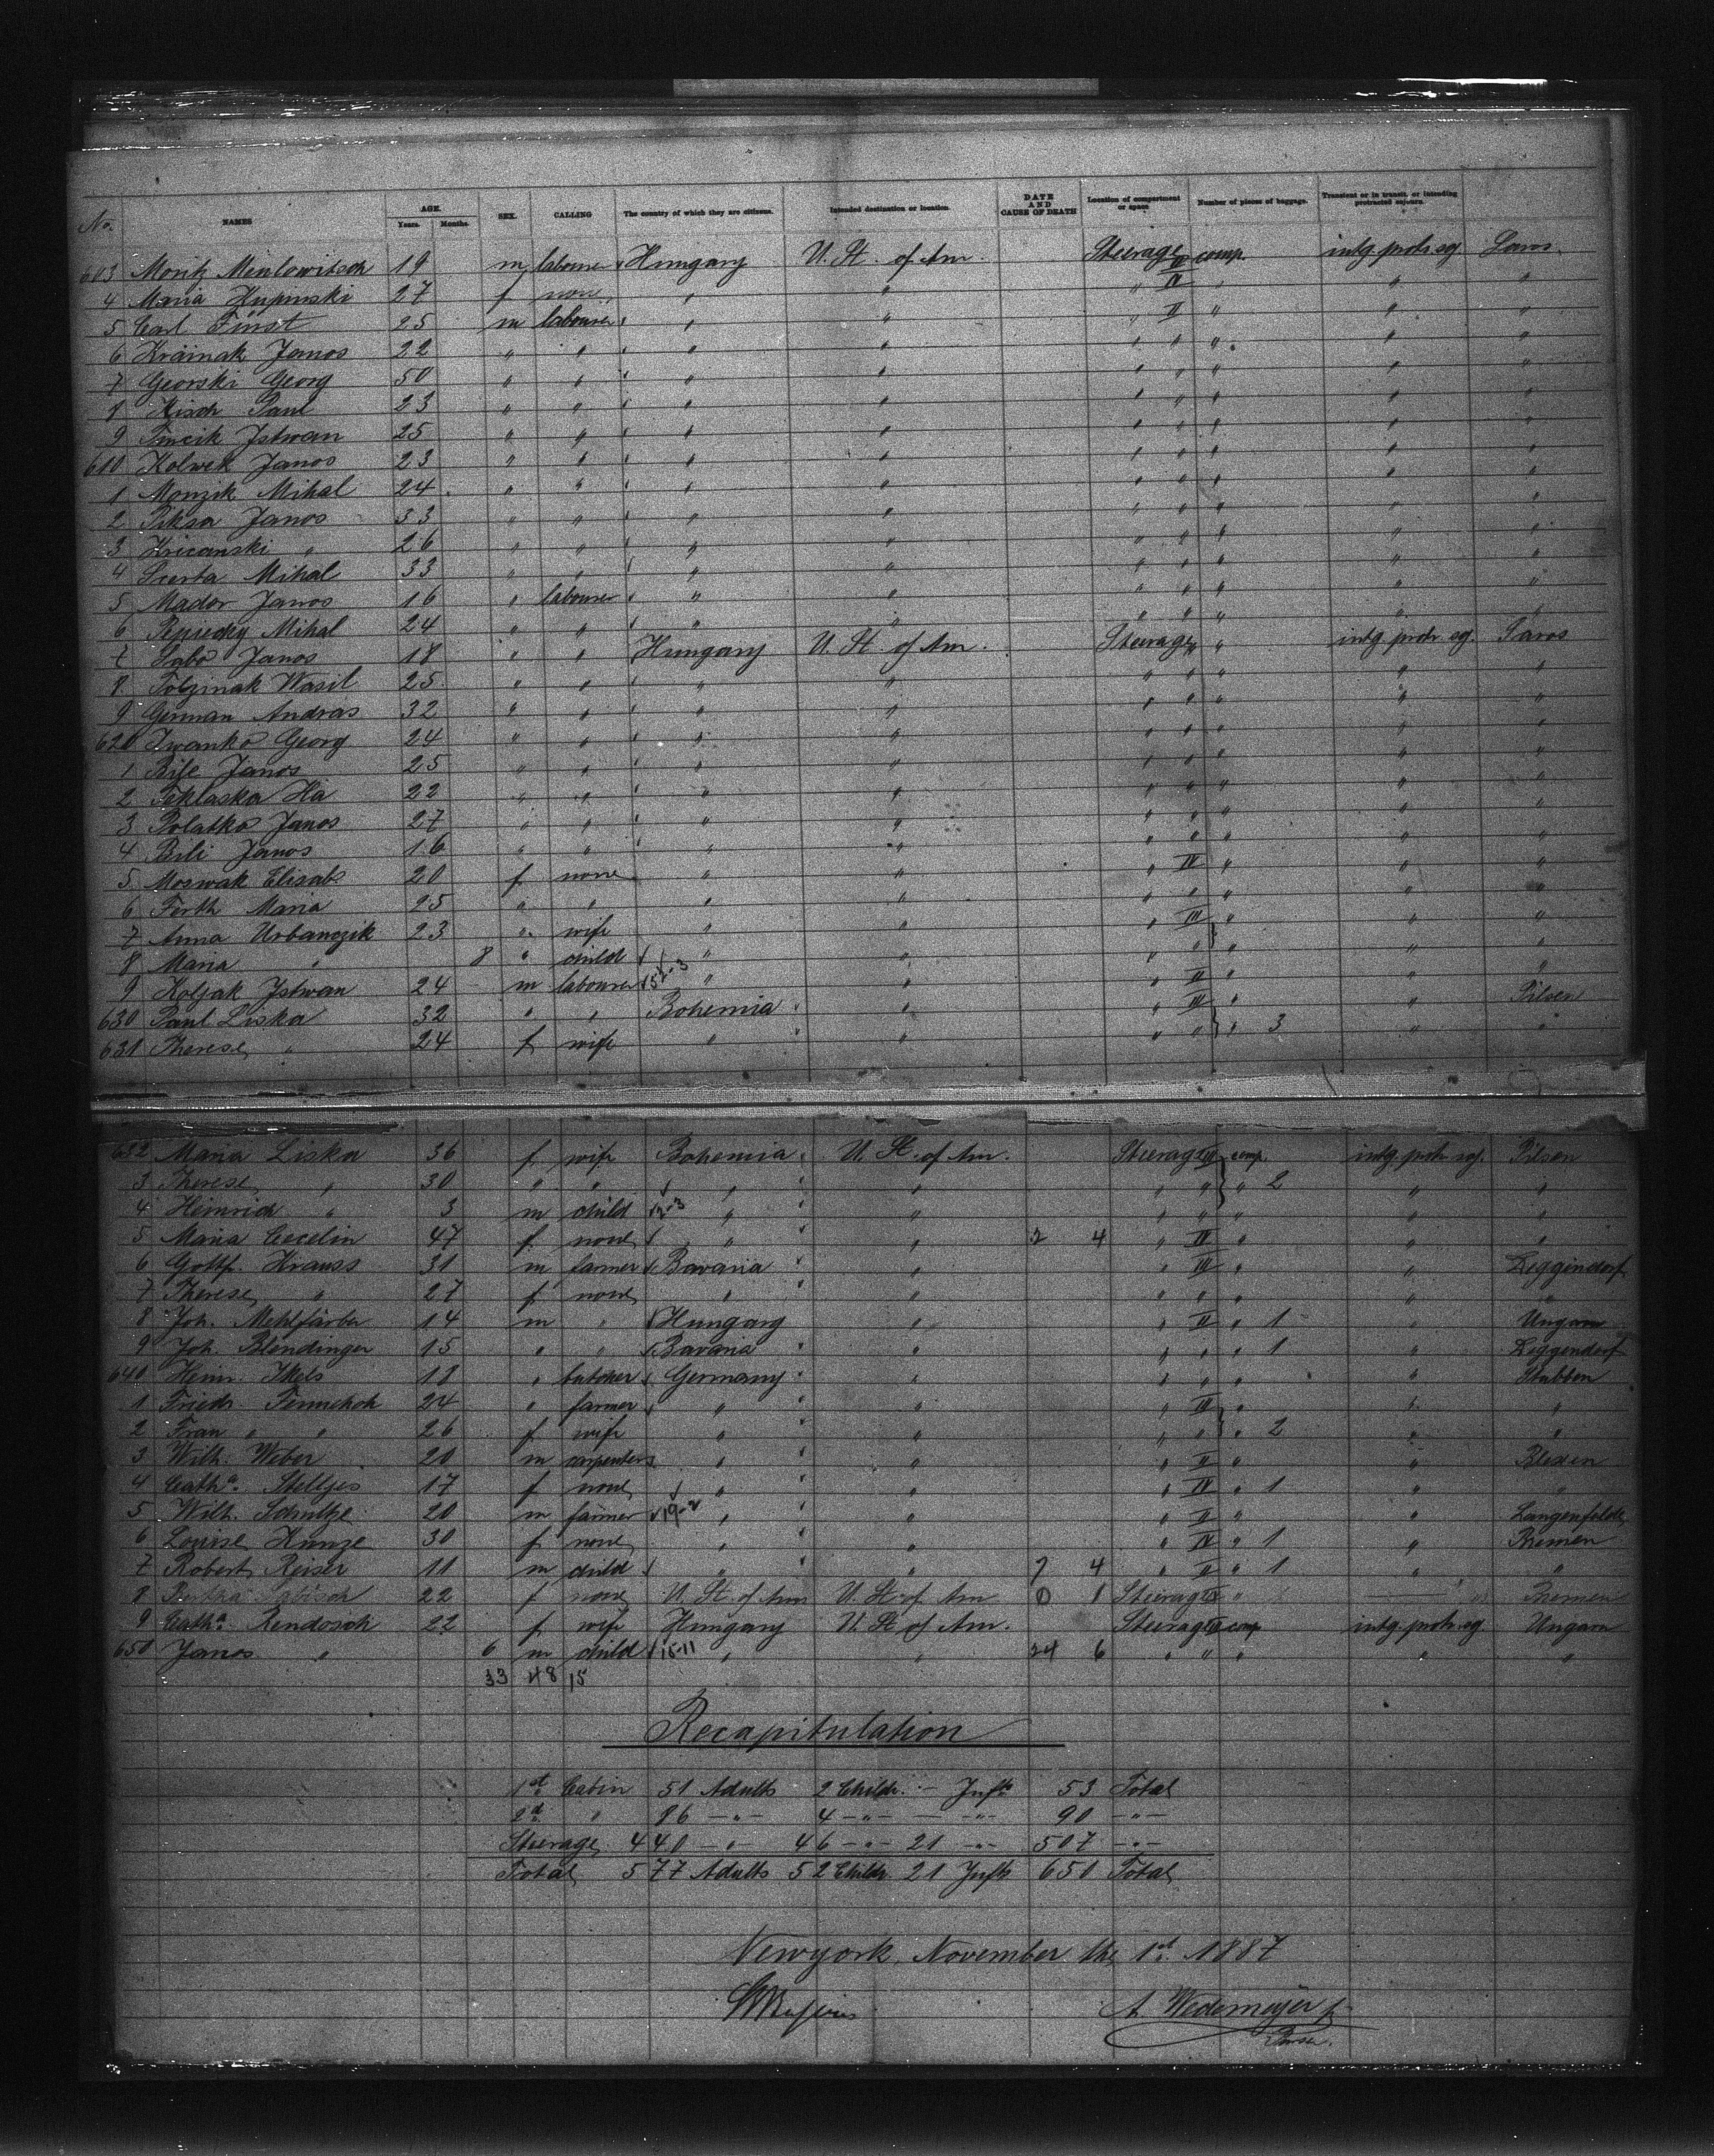 No. NAMES AGE. Years. Months. SEX. CALLING The country of which they are citizens. Intended destination or location. DATE AND CAUSE OF DEATH Location of compartment or space Number of pieces of baggage. Transient or in transit, or intending protracted sojourn.
603 Moritz 19 m labourer Hungary U. St. of Am. Steerage II comp. intg. protr. soj. Saros
4 Maria 27 f none " " " IV " " "
5 Carl Fürst 25 m labourer " " " II " " "
6 Krainak Janos 22 " " " " " " " " "
7 Georski Georg 50 " " " " " " " " "
8 Kisch Paul 23 " " " " " " " " "
9 Istwan 25 " " " " " " " " "
610 Kolwek Janos 23 " " " " " " " " "
1 Monzik Mihal 24 " " " " " " " " "
2 Piksa Janos 33 " " " " " " " " "
3 Kricanski " 26 " " " " " " " " "
4 Mihal 33 " " " " " " " " "
5 Mador Janos 16 " labourer " " " " " " "
6 Mihal 24 " " " " " " " " "
7 Sabo Janos 18 " " Hungary U. St. of Am. Steerage " " intg. protr. soj. Saros
8 Tolzinak Wasil 25 " " " " " " " " "
9 German Andras 32 " " " " " " " " "
620 Iwanko Georg 24 " " " " " " " " "
1 Janos 25 " " " " " " " " "
2 Teklaska Ha 22 " " " " " " " " "
3 Polatko Janos 27 " " " " " " " " "
4 Bili Janos 16 " " " " " " " " "
5 Moswak Elisab. 20 f none " " " IV " " "
6 Ferth Maria 25 " " " " " " " " "
7 Anna Urbanczik 23 " wife " " " III " " "
8 Maria " 8 " child " " " " " " "
9 Koljak Istwan 24 m labourer 52-3 " " " II " " "
630 Paul Liska 32 " " Bohemia " " III " " Pilsen
631 Therese " 24 f wife " " " " " 3 " "
632 Maria Liska 36 f wife Bohemia U. St. of Am. Steerage III comp. intg. protr. soj. Pilsen
3 Therese " 30 " " " " " " " 2 " "
4 Heinrich " 3 m child 12-3 " " " " " " "
5 Maria Cecelin 47 f none " " 2 4 " IV " " "
6 Gottf. Krauss 31 m farmer Bavaria " " III " " Deggendorf
7 Therese " 27 f none " " " " " " "
8 Joh. Mehlfärber 14 m " Hungary " " II " 1 " Ungarn
9 Joh. Blendinger 15 " " Bavaria " " " " 1 " Deggendorf
640 Heinr. Ikels 18 " butcher Germany " " " " " Stubben
1 Friedr. 24 " farmer " " " III " " "
2 Frau " " 26 f wife " " " " " 2 " "
3 Wilh. Weber 20 m carpenter " " " II " " Blexen
4 Catha. Stelljes 17 f none " " " IV " 1 " "
5 Wilh. Schultze 20 m farmer 19-2 " " " II " " Langenfelde
6 Louise Kunze 30 f none " " " IV " 1 " Bremen
7 Robert Reiser 11 m child " " 7 4 " II " 1 " "
8 22 f none U. St. of Am U. St. of Am 0 1 Steerage " Bremen
9 Catha. Rendosch 22 f wife Hungary U. St. of Am. Steerage comp intg. protr. soj. Ungarn
650 Janos " 6 m child 15-11 " " 24 6 " " " " "
33 48 15
Recapitulation
1st. Cabin 51 Adults 2 Childr. — Infts 53 Total
2d. " 86 —"— 4 —"— — —"— 90 —"—
Steerage 440 —"— 46 —"— 21 —"— 507 —"—
Total 577 Adults 52 Childr. 21 Infts 650 Total
Newyork, November the 1st. 1887
A. Wedemeyer